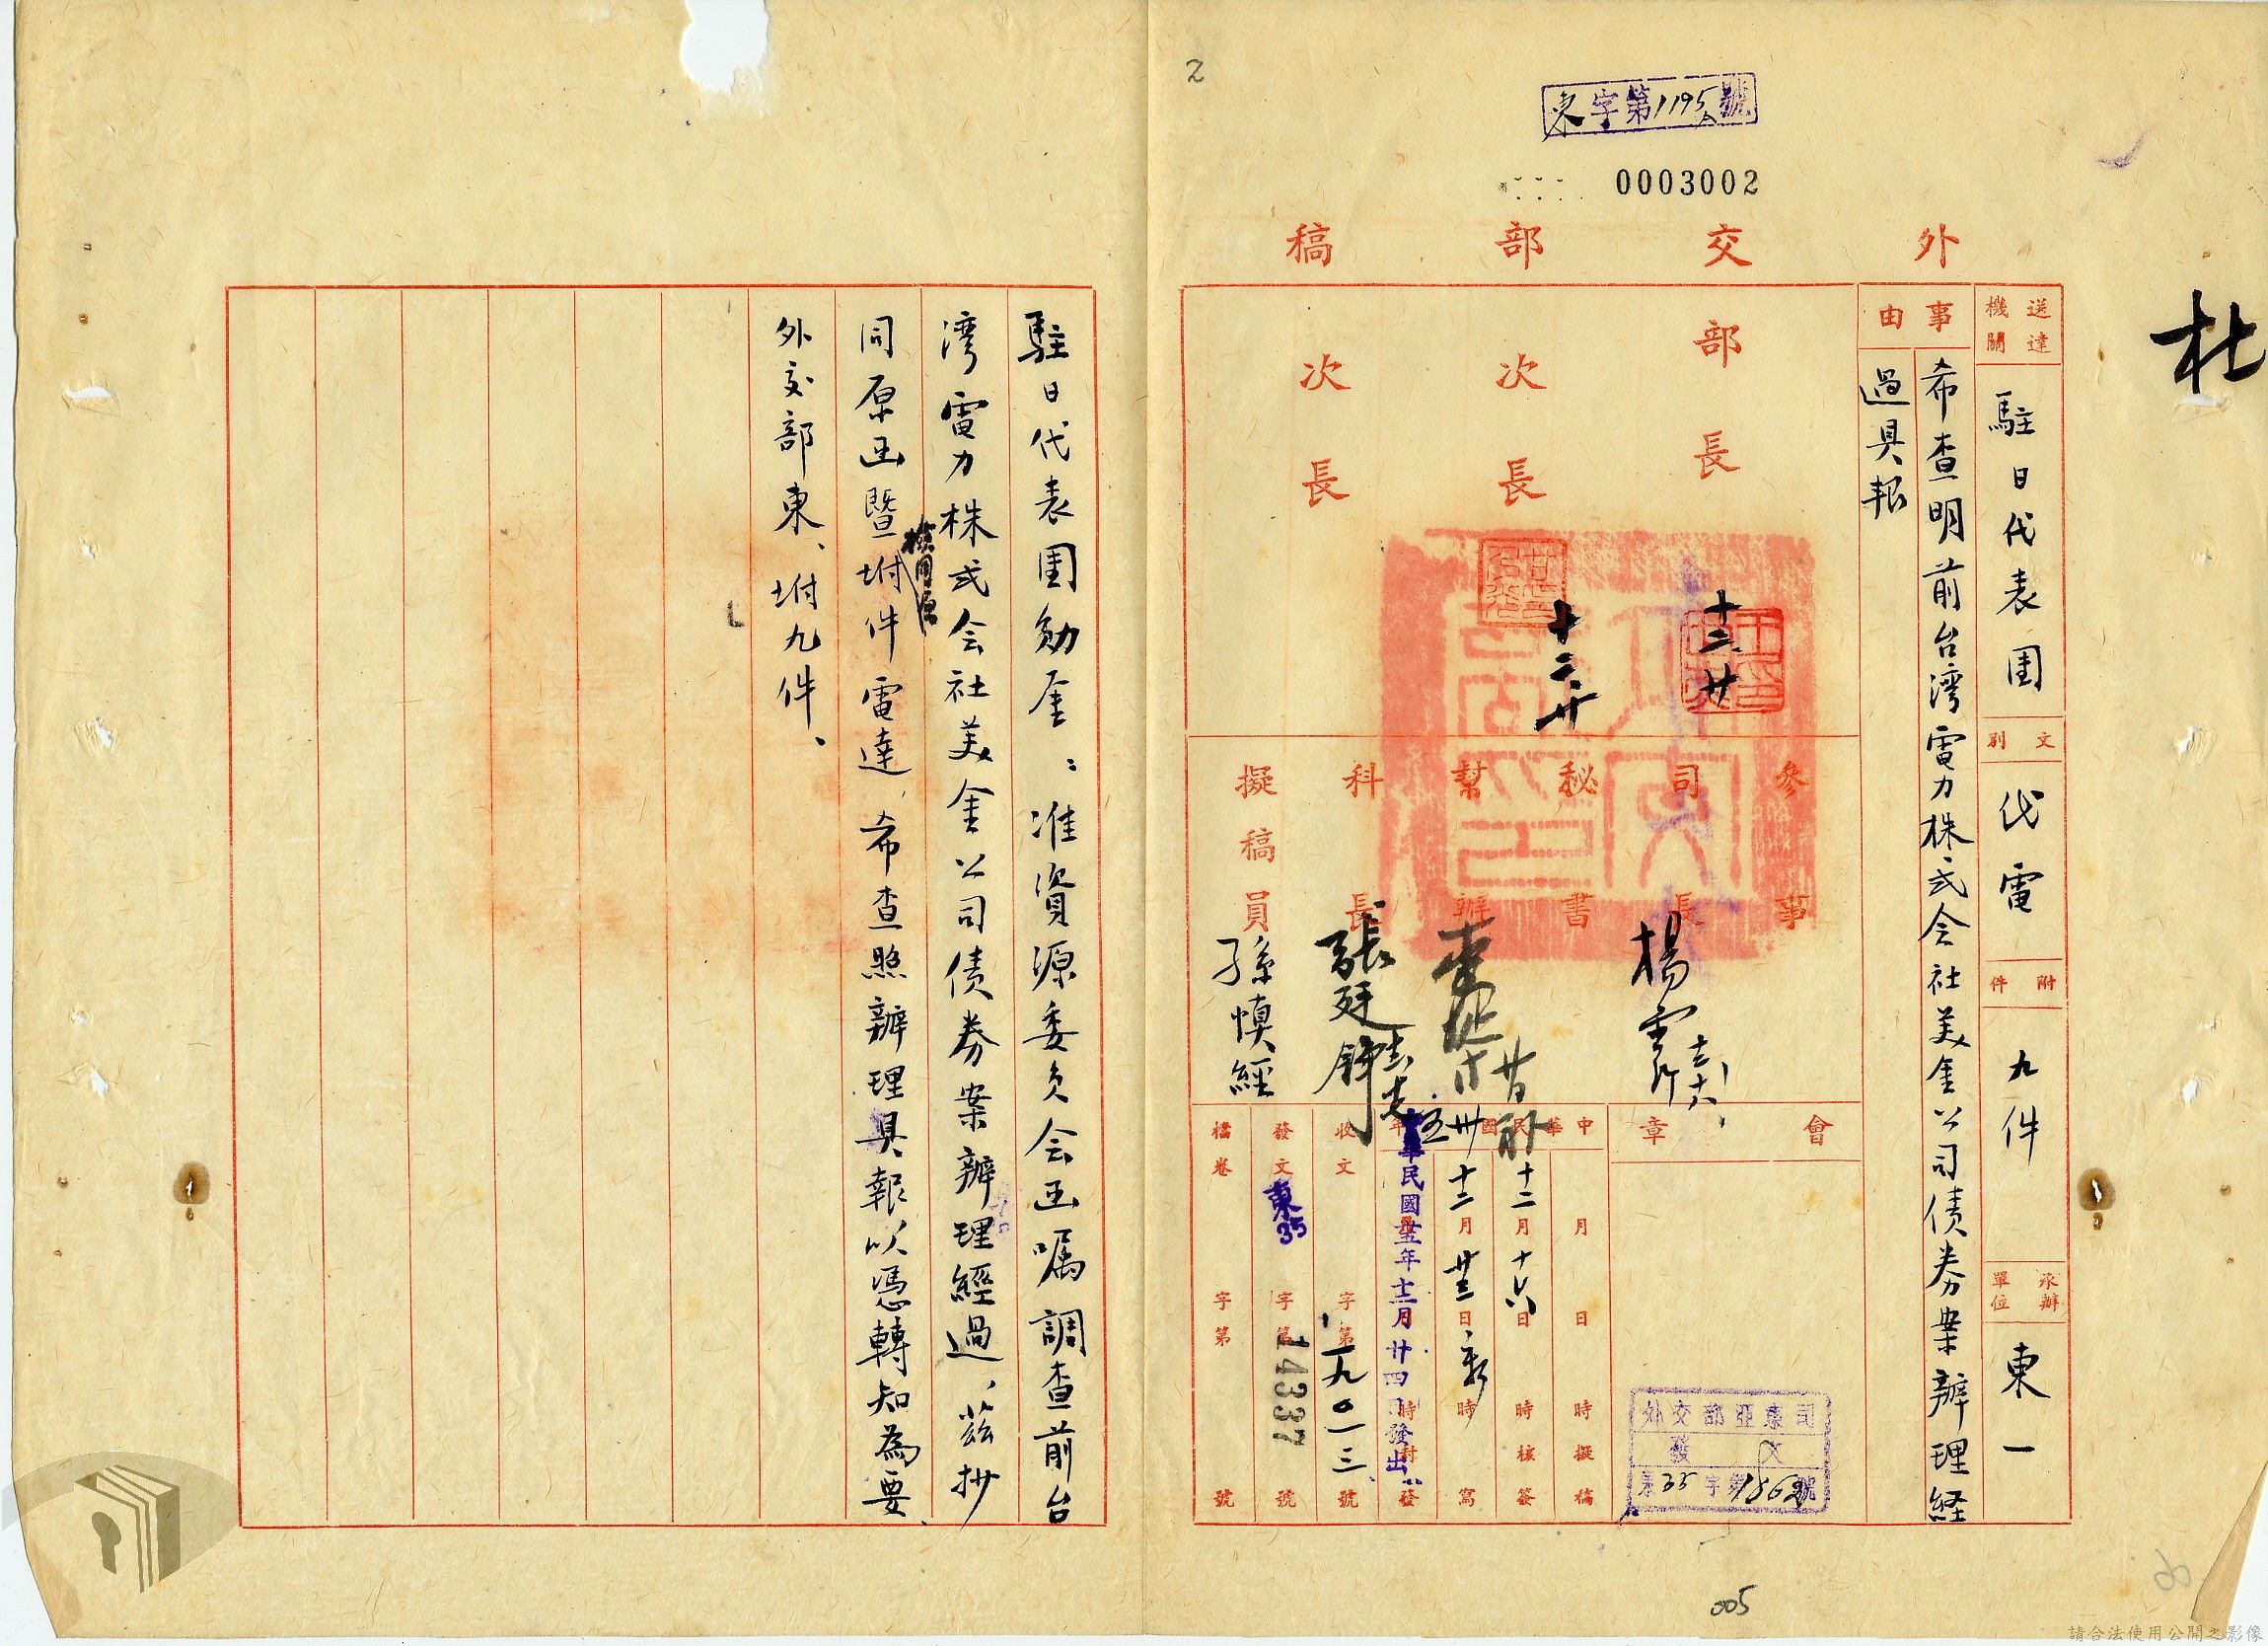 2
東字第1195號
0003002
外交部稿
杜
送達機關
駐日代表团
文別
代電
附件
九件
承辦單位
東一
事由
希查明前台湾電力株式会社美金公司债劵案辦理経
過具报
部長
十二廿
次長
十二廿
次長
參事
司長
楊雲竹
秘書
幫辦
科長
張廷錚
擬稿員
孫慎經
會章
外交部亞東司
發文
東35字第1862號
中華民國卅五年
月日時擬稿
十二月十六日時核簽
十二月廿三日時寫
中華民國卅五年十二月廿四日發出
時封發
收文字第一九〇一三號
發文東35字第14337號
檔卷字第號
駐日代表團勛鉴：准資源委员会函嘱調查前台
湾電力株式会社美金公司债劵案辦理經過，茲抄
同原函暨坿件電達，希查照辦理具報以憑轉知為要
檢同原
外交部東、坿九件、
005
請合法使用公開之影像